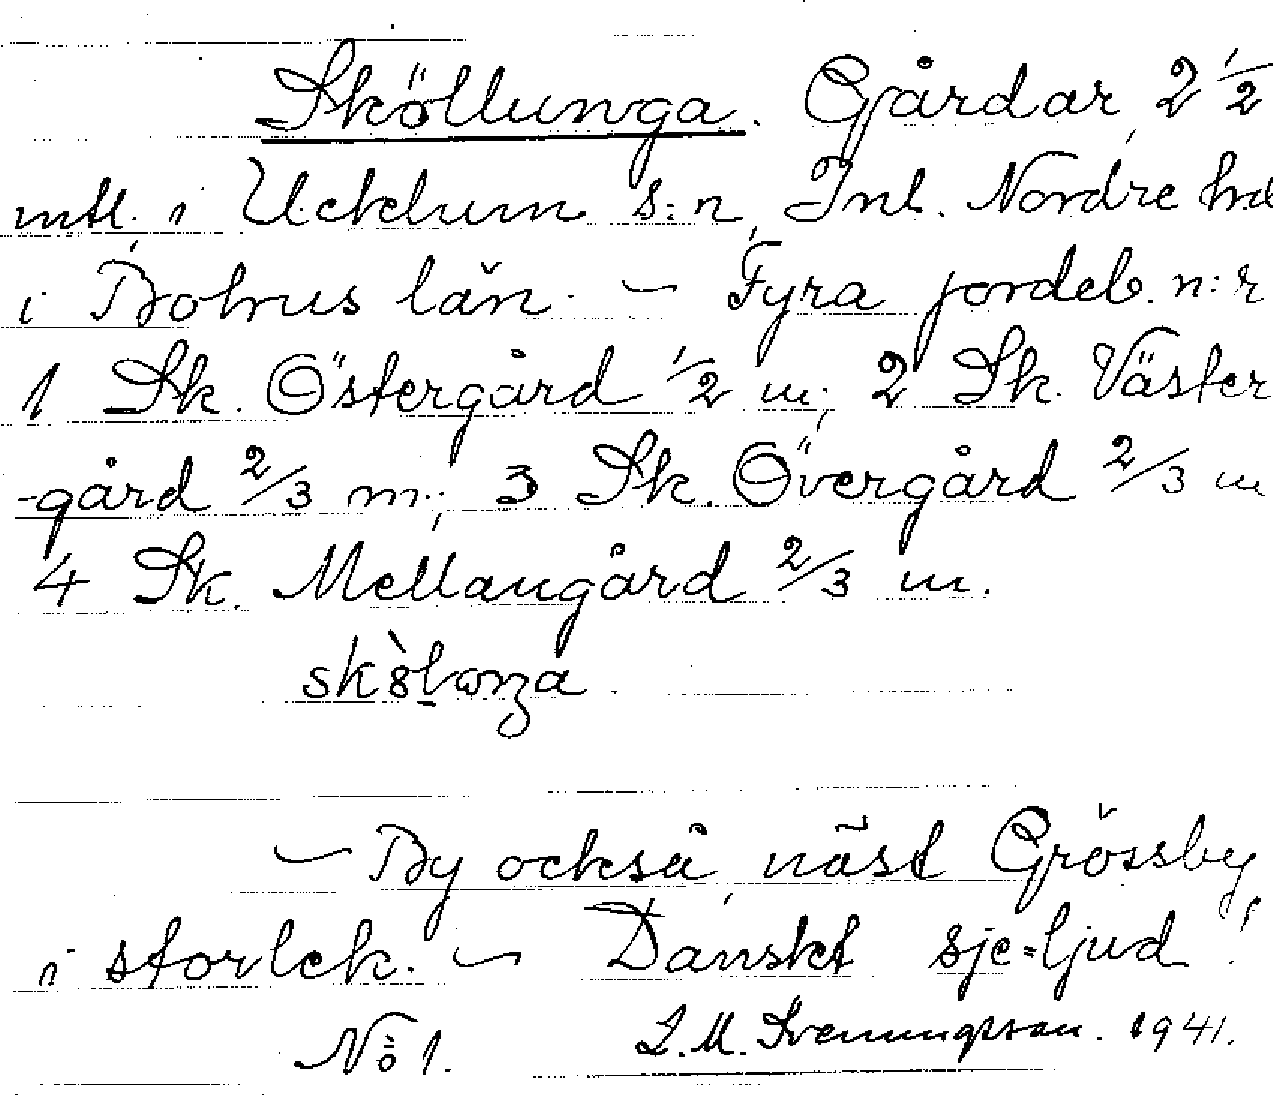 Sköllunga. Gårdar, 2 1/2
mtl. i Ucklum s:n, Inl. Nordre hd
i Bohus län. — Fyra jordeb. n:r
1 Sk. Östergård 1/2 m; 2 Sk. Väster
-gård 2/3 m.; 3 Sk. Övergård 2/3 m
4 Sk. Mellangård 2/3 m.
— By också, näst Grössby
i storlek. — Danskt sje-ljud!
No 1. L. M. Svenungsson. 1941.